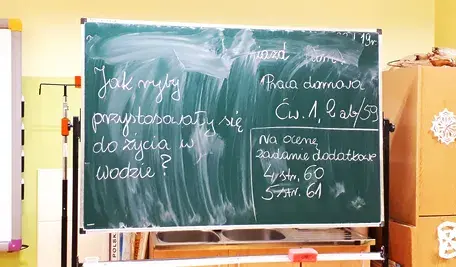 19r
Jak ryby
przystosowały się
do życia w
wodzie?
Praca domowa
Ćw. 1, 2 ab/59
Na ocenę
zadanie dodatkowe
4 str. 60
5 str. 61